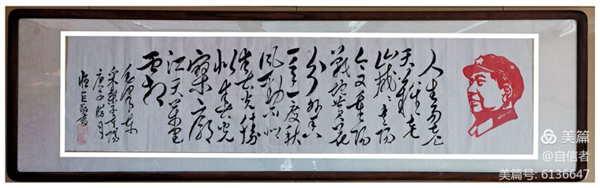 人生易老
天難老
歲歲重陽
今又重陽
戰地黄花
分外香
一年一度秋
風勁不似
春光勝
似春光
寥廓
江天萬里
霜
毛澤東
采桑子重陽
庚子
書
美篇
@自信者
美篇号: 6136647